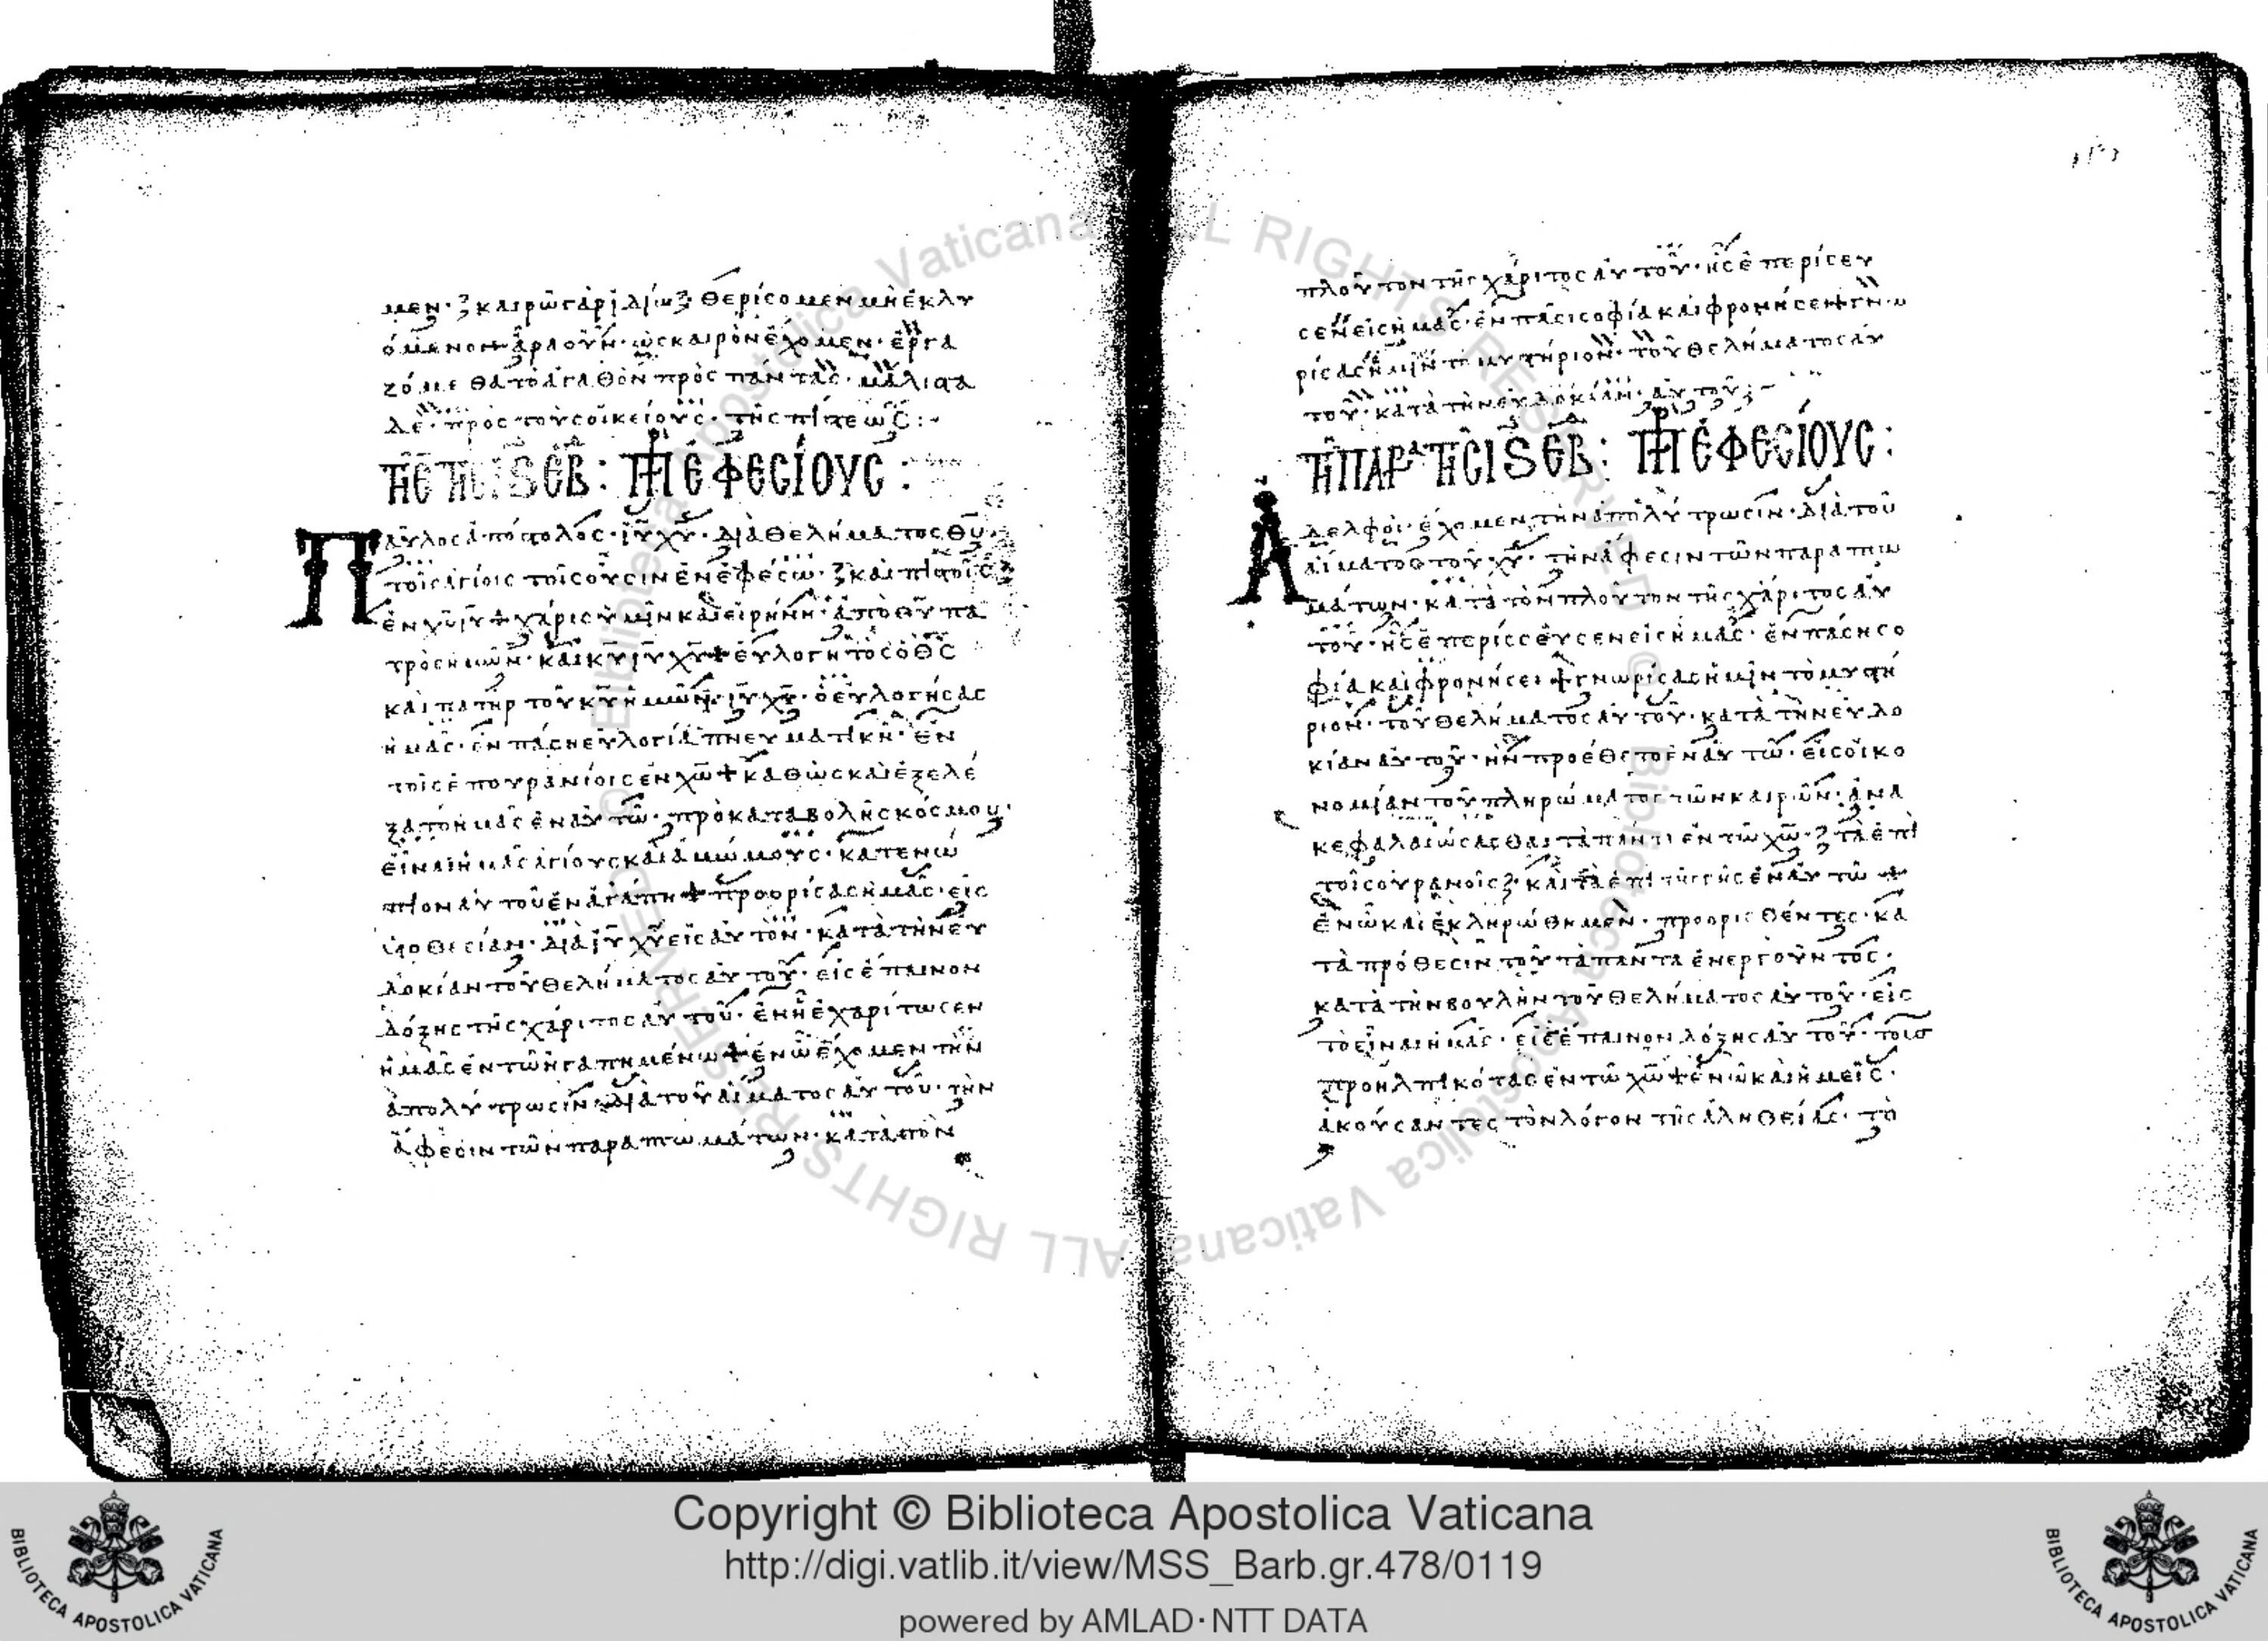 μεν· καιρῶ γὰρ ἰδίω θερίσομεν μὴ ἐκλυ
όμενοι· ἄρα οὖν· ὡς καιρὸν ἔχομεν· ἐργα
ζόμεθα τὸ ἀγαθὸν πρὸς πάντας· μάλιστα
δὲ· πρὸς τοὺς οἰκείους· τῆς πίστεως:
ἐφεσίους:
Παῦλος ἀπόστολος· ἰῦ χῦ· διὰ θελήματος θῦ·
τοῖς ἁγίοις τοῖς οὖσιν ἐν ἐφέσω· καὶ πιστοῖς
ἐν χῶ ἰῦ + χάρις ὑμῖν καὶ εἰρήνη· ἀπὸ θῦ πα
τρὸς ἡμῶν· καὶ κῦ ἰῦ χῦ + εὐλογητὸς ὁ θς
καὶ πατὴρ τοῦ κῦ ἡμῶν· ἰῦ χῦ· ὁ εὐλογήσας
ἡμᾶς· ἐν πάση εὐλογία πνευματικῆ· ἐν
τοῖς ἐπουρανίοις ἐν χῶ + καθὼς καὶ ἐξελέ
ξατο ἡμᾶς ἐν αὐτῶ· πρὸ καταβολῆς κόσμου·
εἶναι ἡμᾶς ἁγίους καὶ ἀμώμους· κατενώ
πιον αὐτοῦ ἐν ἀγάπη + προορίσας ἡμᾶς· εἰς
υἱοθεσίαν· διὰ ἰῦ χῦ εἰς αὐτὸν· κατὰ τὴν εὐ
δοκίαν τοῦ θελήματος αὐτοῦ· εἰς ἔπαινον
δόξης τῆς χάριτος αὐτοῦ· ἐν ἧ ἐχαρίτωσεν
ἡμᾶς ἐν τῶ ἠγαπημένω + ἐν ὧ ἔχομεν τὴν
ἀπολύτρωσιν· διὰ τοῦ αἵματος αὐτοῦ· τὴν
ἄφεσιν τῶν παραπτωμάτων· κατὰ τὸν
πλοῦτον τῆς χάριτος αὐτοῦ· ἧς ἐπερίσευ
σεν εἰς ἡμᾶς· ἐν πάσι σοφία καὶ φρονήσει + γνω
ρίσας ἡμῖν τὸ μυστήριον· τοῦ θελήματος αὐ
τοῦ· κατὰ τὴν εὐδοκίαν· αὐτοῦ:
ἐφεσίους:
Ἀδελφοὶ· ἔχομεν τὴν ἀπολύτρωσιν· διὰ τοῦ
αἵματος τοῦ χῦ· τὴν ἄφεσιν τῶν παραπτω
μάτων· κατὰ τὸν πλοῦτον τῆς χάριτος αὐ
τοῦ· ἧς ἐπερίσσευσεν εἰς ἡμᾶς· ἐν πάση σο
φία καὶ φρονήσει + γνωρίσας ἡμῖν τὸ μυστή
ριον· τοῦ θελήματος αὐτοῦ· κατὰ τὴν εὐδο
κίαν αὐτοῦ· ἣν προέθετο ἐν αὐτῶ· εἰς οἰκο
νομίαν τοῦ πληρώματος τῶν καιρῶν· ἀνα
κεφαλαιώσασθαι τὰ πάντα ἐν τῶ χῶ· τὰ ἐπὶ
τοῖς οὐρανοῖς καὶ τὰ ἐπὶ τῆς γῆς ἐν αὐτῶ +
ἐν ὧ καὶ ἐκληρώθημεν· προορισθέντες· κα
τὰ πρόθεσιν τοῦ τὰ πάντα ἐνεργοῦντος·
κατὰ τὴν βουλὴν τοῦ θελήματος αὐτοῦ· εἰς
τὸ εἶναι ἡμᾶς· εἰς ἔπαινον δόξης αὐτοῦ· τοὺς
προηλπικότας ἐν τῶ χῶ + ἐν ὧ καὶ ἡμεῖς·
ἀκούσαντες τὸν λόγον τῆς ἀληθείας· τὸ
Copyright © Biblioteca Apostolica Vaticana
http://digi.vatlib.it/view/MSS_Barb.gr.478/0119
powered by AMLAD·NTT DATA
BIBLIOTECA APOSTOLICA VATICANA
BIBLIOTECA APOSTOLICA VATICANA